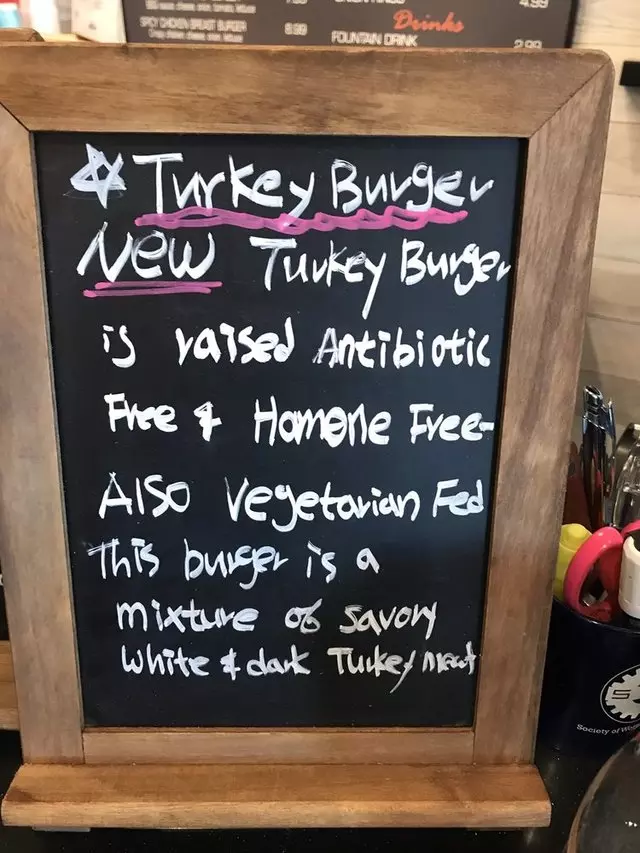 4.99
Drinks
SPICY CHICKEN BREAST BURGER 8.99
FOUNTAIN DRINK 2.99
Turkey Burger
NEW Turkey Burger
is raised Antibiotic
Free & Hormone Free-
Also Vegetarian Fed
This burger is a
mixture of savory
White & dark Turkey meat
Society of